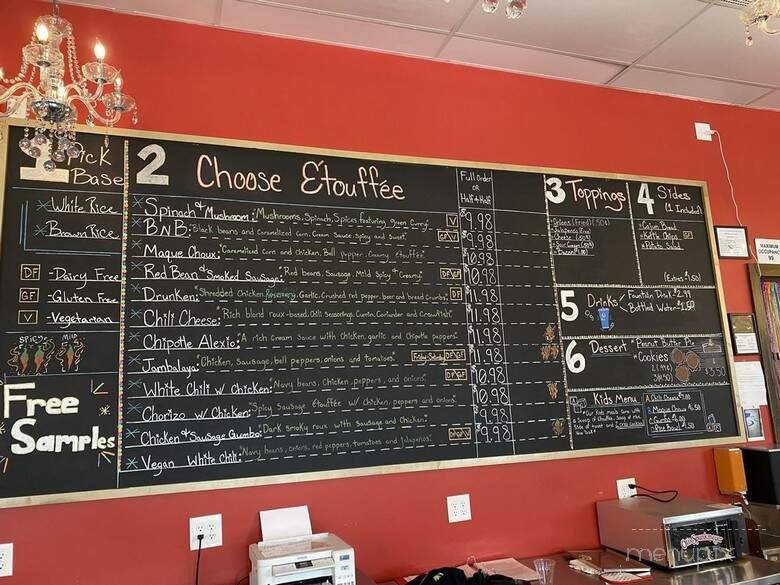 1 Pick
Base
White Rice
Brown Rice
DF - Dairy Free
GF - Gluten Free
V - Vegetarian
Spicy Mild
Free
Samples
2 Choose Étouffée
Full Order
or
Half & Half
Spinach & Mushroom: Mushrooms, Spinach, Spices featuring green curry. V $9.98
BNB: Black beans and Caramelized Corn, Cream Sauce, spicy and sweet. GF/V 9.98
Maque Choux: Caramelized corn and chicken, Bell pepper, Creamy étouffée 10.98
Red Bean & Smoked Sausage: Red beans, Sausage, Mild Spicy & Creamy. DF/GF 10.98
Drunken: Shredded chicken, Rosemary, Garlic, crushed red pepper, beer and bread crumbs. DF 11.98
Chili Cheese: Rich blend roux-based, Chili Seasoning, Cumin, Coriander and Crawfish! 11.98
Chipotle Alexio: A rich Cream Sauce with chicken, garlic and chipotle peppers. $11.98
Jambalaya: Chicken, sausage, bell peppers, onions and tomatoes. DF/GF 11.98
White Chili w/ Chicken: Navy beans, chicken, peppers, and onions. DF/GF 10.98
Chorizo w/ Chicken: Spicy Sausage Étouffée w/ Chicken, peppers and onions.
Chicken & Sausage Gumbo: Dark smoky roux with sausage and Chicken. 9.98
Vegan White Chili: Navy beans, onions, red peppers, tomatoes and jalapeños. 9.98
3 Toppings
Onions (Free) (.50¢)
Jalapenos (Free)
Cheese
Sour Cream
4 Sides
(1 Included)
Cajun Bread
Potato Salad
(Extras $1.50)
5 Drinks
Fountain Drink $2.49
Bottled Water $1.50
6 Dessert
Peanut Butter Pie
Cookies
$3.50
Kids Menu
Chili Cheese
Maque Choux
MAXIMUM
OCCUPANCY
99
menupix